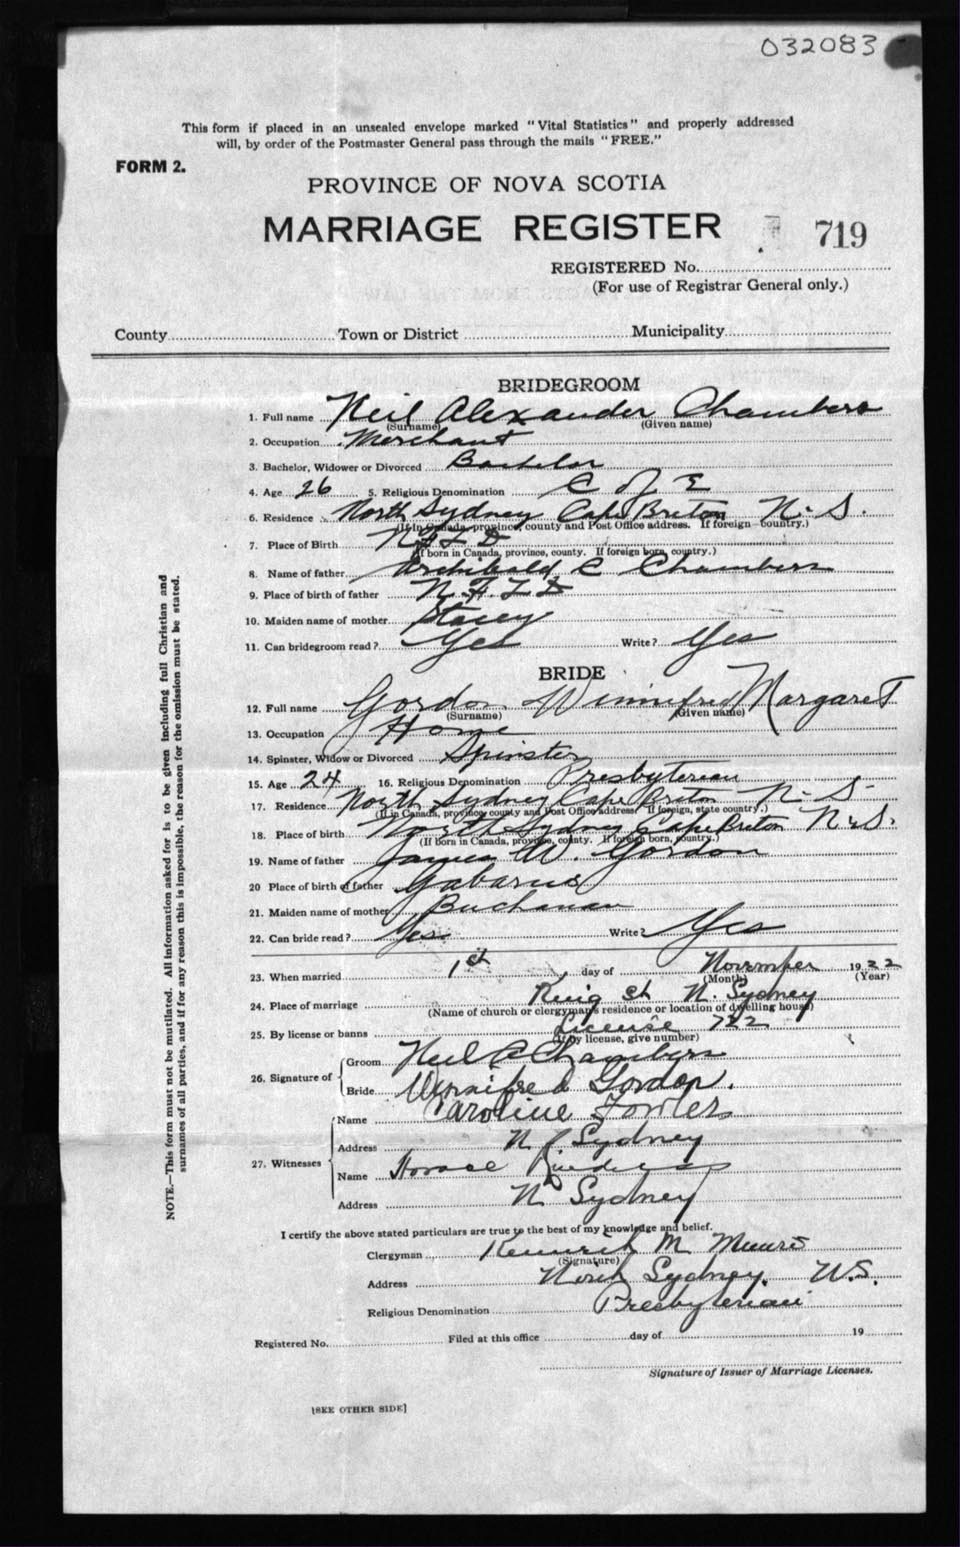 032083
This form if placed in an unsealed envelope marked "Vital Statistics" and properly addressed
will, by order of the Postmaster General pass through the mails "FREE."
FORM 2.
PROVINCE OF NOVA SCOTIA
MARRIAGE REGISTER 719
REGISTERED No.
(For use of Registrar General only.)
County Town or District Municipality
BRIDEGROOM
1. Full name Neil Alexander Chambers
(Surname) (Given name)
2. Occupation Merchant
3. Bachelor, Widower or Divorced Bachelor
4. Age 26 5. Religious Denomination C of E
6. Residence North Sydney Cape Breton N. S.
(If in Canada, province, county and Post Office address. If foreign country.)
7. Place of Birth NFLD
(If born in Canada, province, county. If foreign born, country.)
8. Name of father Archibald C Chambers
9. Place of birth of father N.F.L.D
10. Maiden name of mother Stacey
11. Can bridegroom read? Yes Write? Yes
BRIDE
12. Full name Gordon Winnifred Margaret
(Surname) (Given name)
13. Occupation Home
14. Spinster, Widow or Divorced Spinster
15. Age 24 16. Religious Denomination Presbyterian
17. Residence North Sydney Cape Breton N. S.
(If in Canada, province, county and Post Office address. If foreign, state country.)
18. Place of birth North Sydney Cape Breton N.S.
(If born in Canada, province, county. If foreign born, country.)
19. Name of father James W. Gordon
20 Place of birth of father Gabarus
21. Maiden name of mother Buchanan
22. Can bride read? Yes Write? Yes
23. When married 1st day of November 1922
(Month) (Year)
24. Place of marriage King St N. Sydney
(Name of church or clergyman's residence or location of dwelling house)
25. By license or banns License 722
(If by license, give number)
26. Signature of Groom Neil Chambers
Bride Winnifred Gordon.
27. Witnesses Name Caroline Fowler
Address N. Sydney
Name Horace
Address N Sydney
I certify the above stated particulars are true to the best of my knowledge and belief.
Clergyman Kenneth M Munro
(Signature)
Address North Sydney. N.S.
Religious Denomination Presbyterian
Registered No. Filed at this office day of 19
Signature of Issuer of Marriage Licenses.
[SEE OTHER SIDE]
NOTE.—This form must not be mutilated. All information asked for is to be given including full Christian and
surnames of all parties, and if for any reason this is impossible, the reason for the omission must be stated.